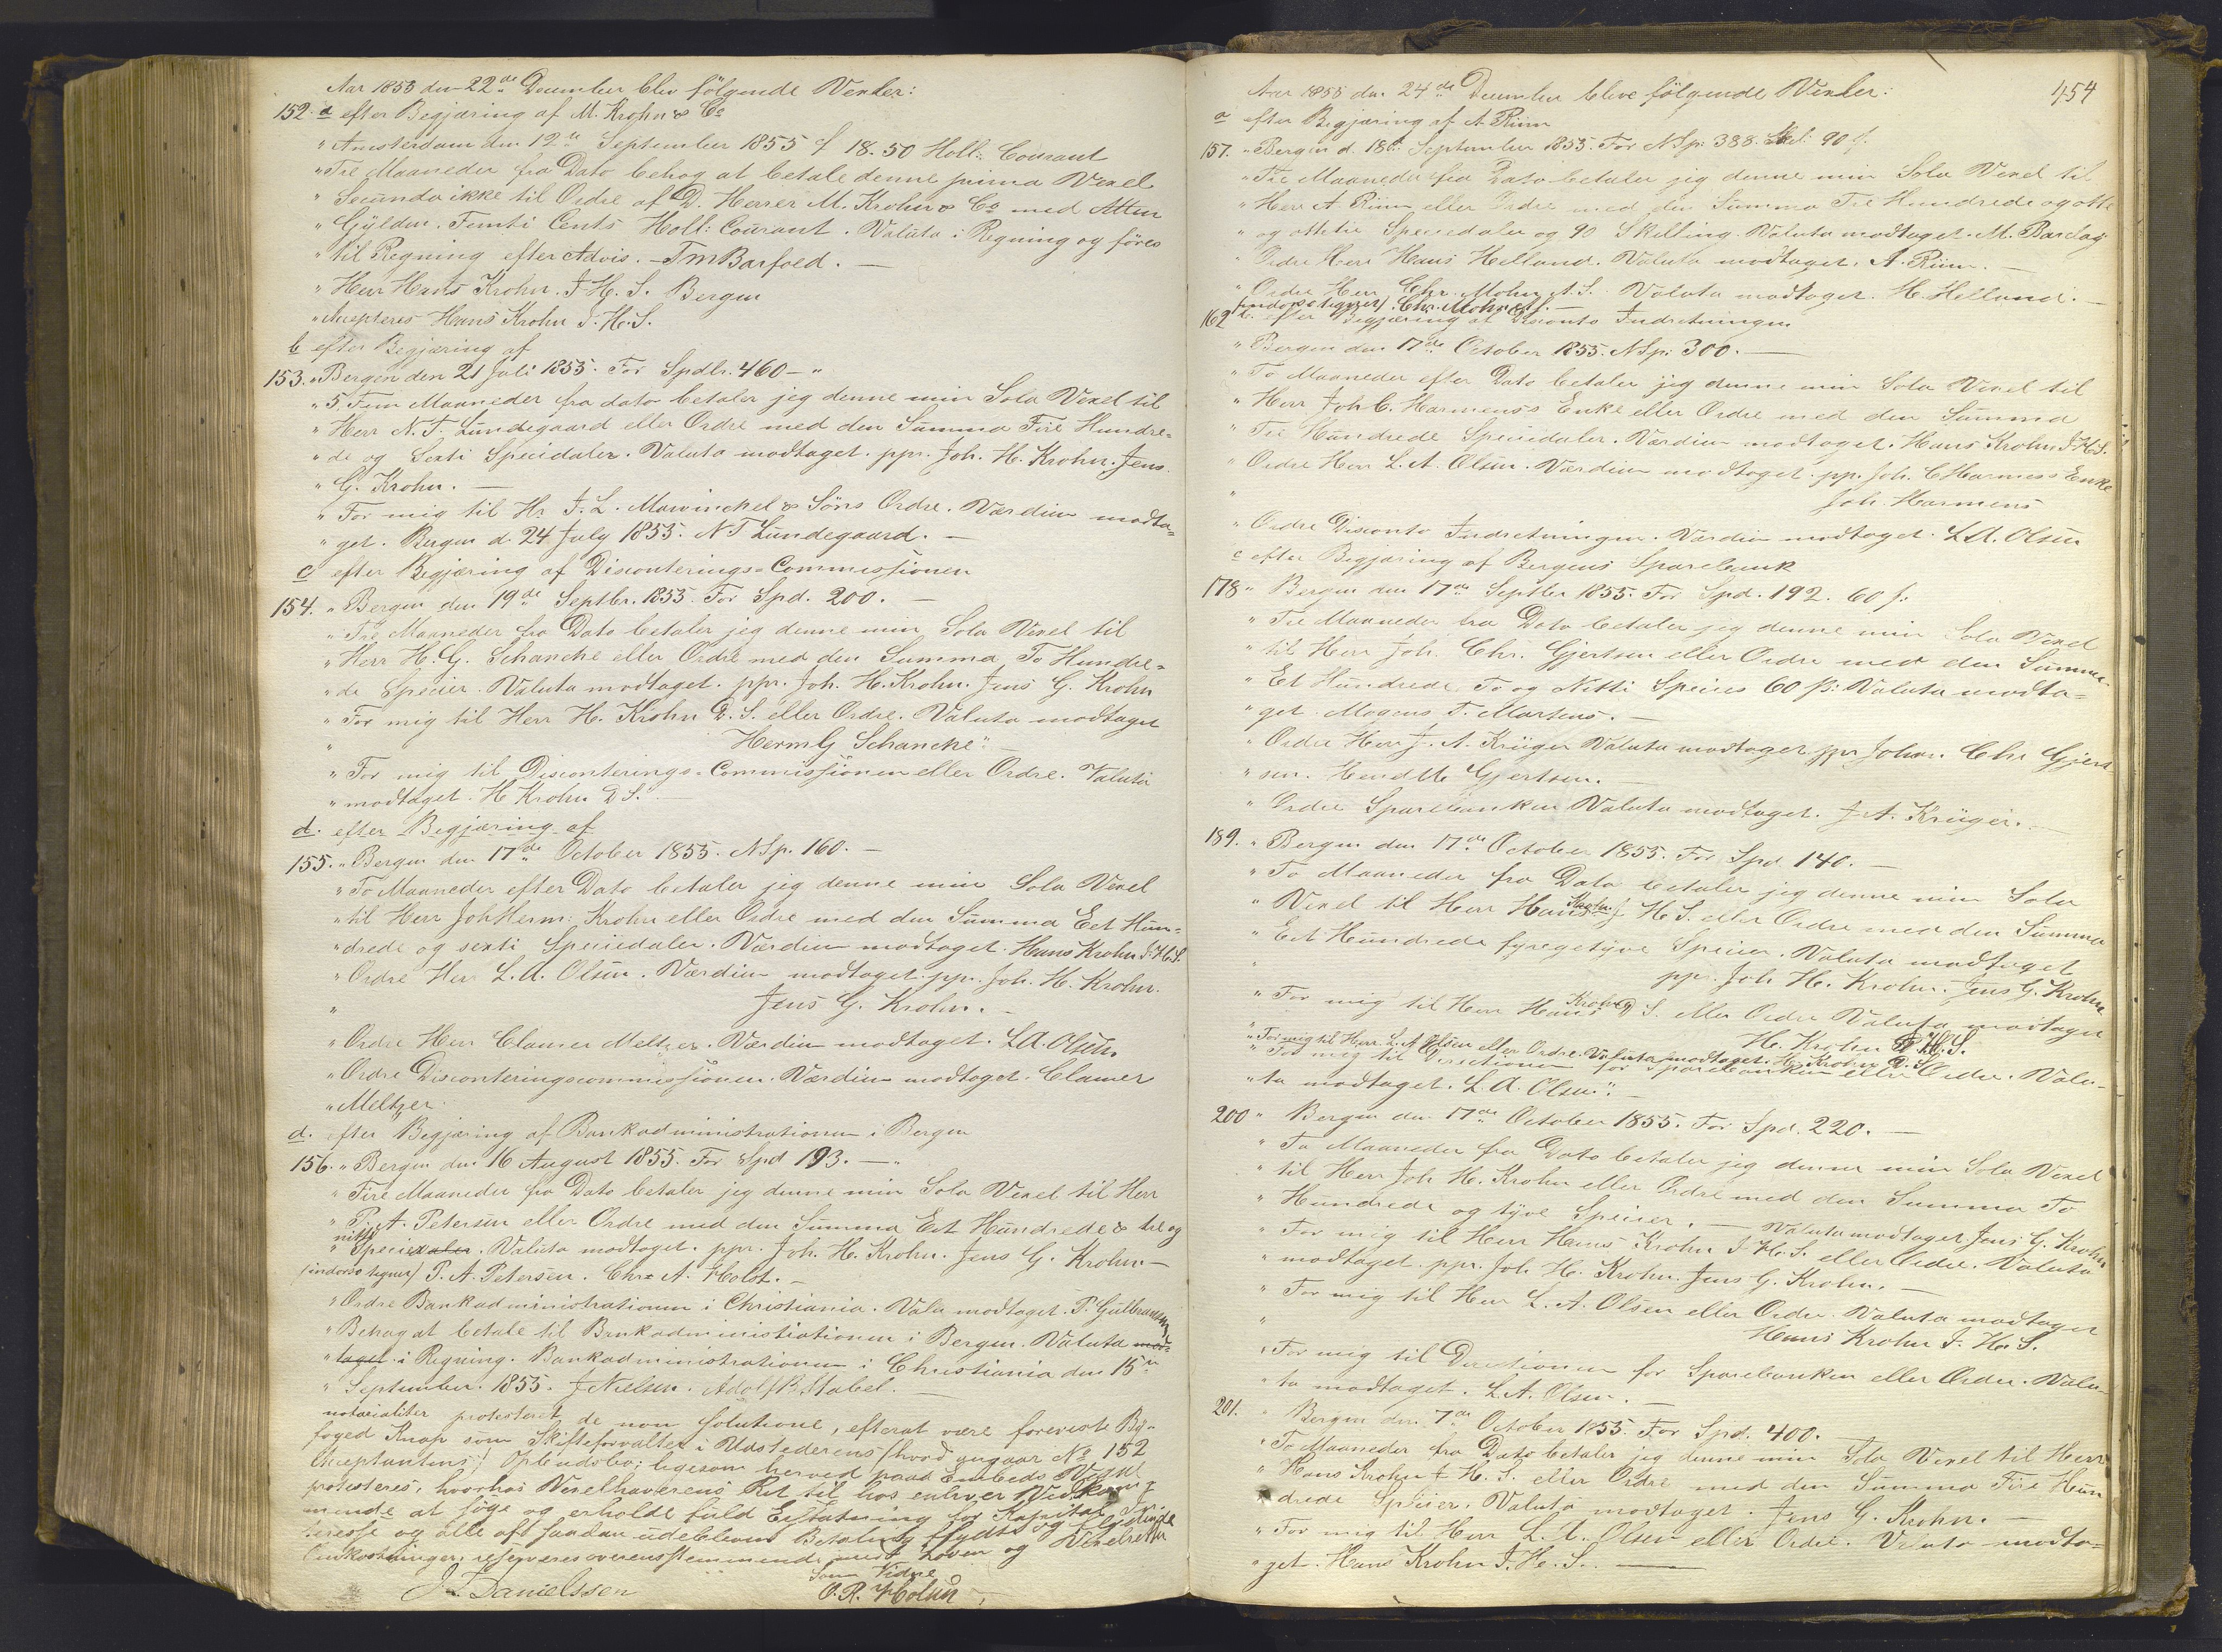 Aar 1855 den 22de December blev følgende Vexler:
152. a efter Begjæring af M. Krohn & Co
" Amsterdam den 12te September 1855 f 18.50 Holl: Courant
" Tre Maaneder fra Dato behag at betale denne prima Vexel
" Secunda ikke til Ordre af D. Herrer M. Krohn & Co med Atten
" Gylden. Femti Cents Holl: Courant. Valuta i Regning og føres
" til Regning efter Advis. – TmBarfoed. –
" Herr Hans Krohn. J. H. S. Bergen
" Accepteres Hans Krohn J. H. S.
b efter Begjæring af
153. " Bergen den 21 Juli 1855. For Spdlr. 460 – "
" 5, Fem Maaneder fra dato betaler jeg denne min Sola Vexel til
" Herr N. T. Lundegaard eller Ordre med den Summa Fire Hundre=
" de og Sexti Speciedaler. Valuta modtaget. ppr. Joh. H. Krohn. Jens
" G. Krohn. –
" For mig til Hr J. L. Mowinckel & Søns Ordre. Værdien modta=
" get. Bergen d. 24 July 1855. N T Lundegaard. –
c efter Begjæring af Disconterings=Commissionen
154. " Bergen den 19de Septbr. 1855. For Spd. 200. –
" Tre Maaneder fra Dato betaler jeg denne min Sola Vexel til
" Herr H. G. Schancke eller Ordre med den Summa To Hundre=
" de Specier. Valuta modtaget. ppr. Joh. H. Krohn. Jens G. Krohn
" For mig til Herr H. Krohn D. S. eller Ordre. Valuta modtaget
" Herm G Schancke". –
" For mig til Disconterings=Commissionen eller Ordre. Valuta
" modtaget. H Krohn D S. –
d. efter Begjæring af
155. " Bergen den 17de October 1855. N Sp. 160. –
" To Maaneder efter Dato betaler jeg denne min Sola Vexel
" til Herr Joh Herm: Krohn eller Ordre med den Summa Eet Hun=
" drede og sexti Speciedaler. Værdien modtaget. Hans Krohn J. H S.
" Ordre Herr L. A. Olsen. Værdien modtaget. ppr. Joh. H. Krohn.
" Jens G. Krohn. –
" Ordre Herr Clamer Meltzer. Værdien modtaget. L A. Olsen.
" Ordre Disconteringscommissionen. Værdien modtaget. Clamer
" Meltzer.
d. efter Begjæring af Bankadministrationen i Bergen
156. " Bergen den 16 August 1855. For Spd 193. – "
" Fire Maaneder fra Dato betaler jeg denne min Sola Vexel til Herr
" P. A. Petersen eller Ordre med den Summa Eet Hundrede & tre og
nitti
" Speciedaler. Valuta modtaget. ppr. Joh. H. Krohn. Jens G. Krohn. –
(indorso tegner) P. A. Petersen. Chr. A. Holst. –
" Ordre Bankadministrationen i Christiania. Valu modtaget. P. Gulbransen
" Behag at betale til Bankadministrationen i Bergen. Valuta mod=
" taget i Regning. Bankadministrationen i Christiania den 15de
" September. 1855. J Nielsen. Adolf B. Stabel. –
notarialiter protesteret de non solutione, efterat være foreviste By=
foged Knap som Skifteforvalter i Udstederens (hvad angaar No 152
Acceptantens) Opbudsbo; ligesom herved paa Embeds Vegne
protesteres, hvorhos Vexelhaverens Ret til hos enhver Vedkom=
mende at søge og erholde fuld Erstatning for Kapital
teresse og alle af saadan udebleven Betaling flydte og flydende
Omkostninger, reserveres overensstemmende med Loven og Vexelretten
Som Vidne
J. Danielssen O. R. Holm

454
Aar 1855 den 24de December bleve følgende Vexler:
a efter Begjæring af A. Riim
157. " Bergen d. 18de September 1855. For N Sp: 388. Skil: 90 f.
" Tre Maaneder fra Dato betaler jeg denne min Sola Vexel til
" Herr A. Riim eller Ordre med den Summa Tre Hundrede og otte
" og ottetie Speciedaler og 90 Skilling. Valuta modtaget. M. Barclay
" Ordre Herr Hans Helland. Valuta modtaget. A. Riim. –
" Ordre Herr Chr. Mohn A. S. Valuta modtaget. H. Helland. –
(indorso tegner) Chr. Mohn A S. –
162 b. efter Begjæring af Disconto Indretningen
" Bergen den 17de October 1855. N Sp: 300. –
" To Maaneder efter Dato betaler jeg denne min Sola Vexel til
" Herr Joh C. Harmens's Enke eller Ordre med den Summa
" Tre Hundrede Speciedaler. Værdien modtaget. Hans Krohn J H S.
" Ordre Herr L. A. Olsen. Værdien modtaget. pp. Joh. C Harmens Enke
" Joh. Harmens
" Ordre Disconto Indretningen. Værdien modtaget. L A. Olsen
c efter Begjæring af Bergens Sparebank
178 " Bergen den 17de Septbr 1855. For Spd. 192. 60 f:
" Tre Maaneder fra Dato betaler jeg denne min Sola Vexel
" til Herr Joh. Chr. Gjertsen eller Ordre med den Summa
" Et Hundrede To og Nitti Specier 60 ß: Valuta modta=
" get. Mogens T. Martens. –
" Ordre Herr J. A. Krüger Valuta modtaget. ppr Johan Chr Gjert
" sen. Gjertsen. –
" Ordre Sparebanken Valuta modtaget. J. A. Krüger. –
189. " Bergen den 17de October 1855. For Spd 140. –
" To Maaneder fra Dato betaler jeg denne min Sola
" Vexel til Herr Hans Krohn J H. S. eller Ordre med den Summa
" Eet Hundrede fyregetyve Specier. Valuta modtaget
" ppr. Joh H. Krohn. Jens G. Krohn
" For mig til Herr Hans Krohn D S. eller Ordre Valuta modtaget
H. Krohn J. H. S.
" For mig til Herr. L. A Olsen eller Ordre. Valuta modtaget. H. Krohn D. S.
" For mig til Directionen for Sparebanken eller Ordre. Valu-
" ta modtaget. L. A. Olsen". –
200 " Bergen den 17de October 1855. For Spd. 220. –
" To Maaneder fra Dato betaler jeg denne min Sola Vexel
" til Herr Joh H. Krohn eller Ordre med den Summa To
" Hundrede og tyve Specier. – Valuta modtaget. Jens G. Krohn
" For mig til Herr Hans Krohn J H. S. eller Ordre. Valuta
" modtaget. ppr. Joh. H. Krohn. Jens G. Krohn. –
" For mig til Herr L. A. Olsen eller Ordre. Valuta modtaget
" Hans Krohn J. H. S.
" For mig til Directionen for Sparebanken eller Ordre. Valu-
" ta modtaget. L. A. Olsen. –
201. " Bergen den 7de October 1855. For Spd. 400.
" To Maaneder fra Dato betaler jeg denne min Sola Vexel til Herr
" Hans Krohn J. H. S. eller Ordre med den Summa Fire Hun
drede Specier. Valuta modtaget. Jens G. Krohn. –
" For mig til Herr L. A. Olsen eller Ordre. Valuta modta=
" get. Hans Krohn J. H. S. –